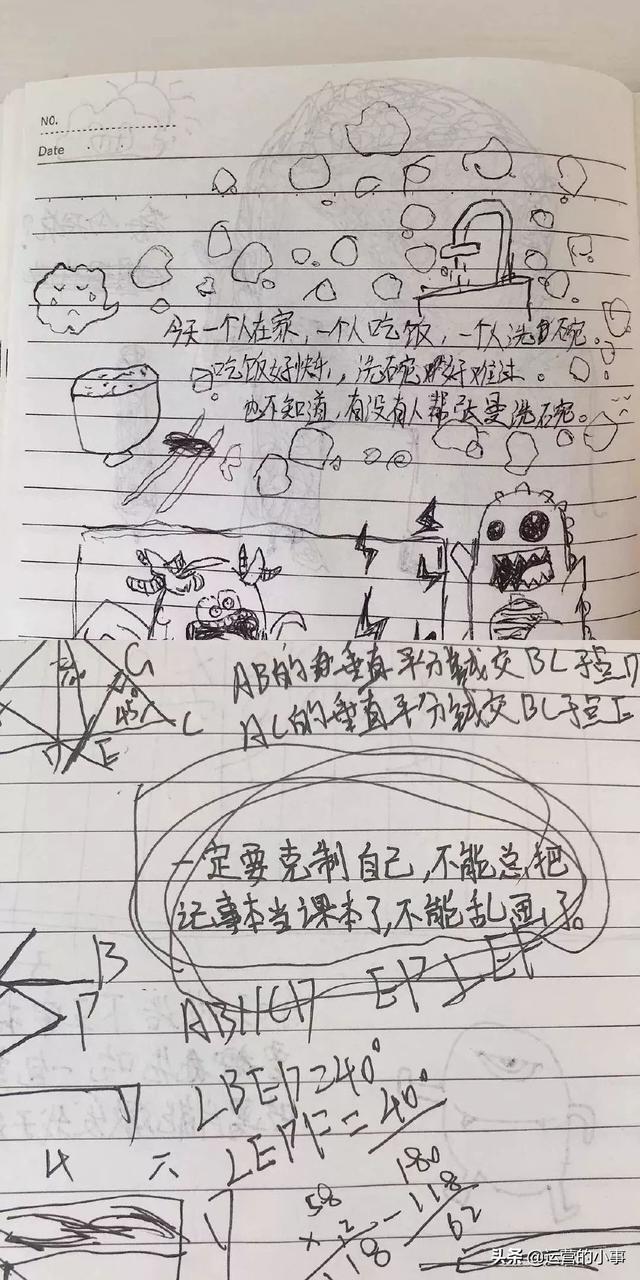 NO.
Date
今天一个人在家,一个人吃饭,一个人洗碗。
吃饭好快乐,洗碗好难过。
也不知道,有没有人帮大曼洗碗。
G
45°
C
D
E
AB的垂直平分线交BC于点D
AC的垂直平分线交BC于点E
一定要克制自己,不能总把
记事本当课本了,不能乱画了。
B
P
AB∥CD EP⊥EF
∠BEP=40°
∠EPF=40°
58
× 2
118
180
-118
62
头条 @运营的小事